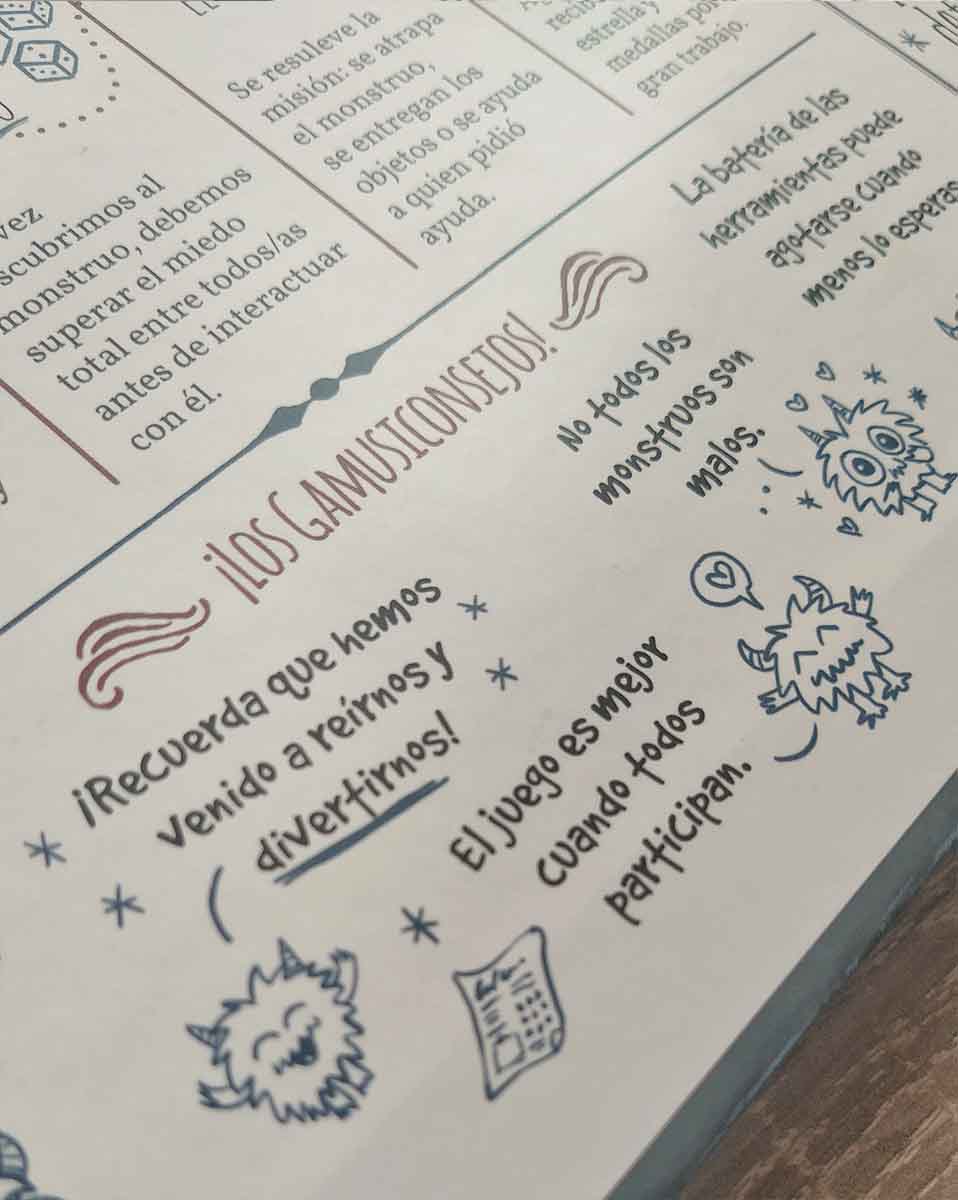 vez
monstruo, debemos
superar el miedo
total entre todos/as
antes de interactuar
con él.
Se resuleve la
misión: se atrapa
el monstruo,
se entregan los
objetos o se ayuda
a quien pidió
ayuda.
estrella y
medallas por
gran trabajo.
¡LOS GAMUSICONSEJOS!
¡Recuerda que hemos
venido a reírnos y
divertirnos!
El juego es mejor
cuando todos
participan.
No todos los
monstruos son
malos.
La batería de las
herramientas puede
agotarse cuando
menos lo esperas